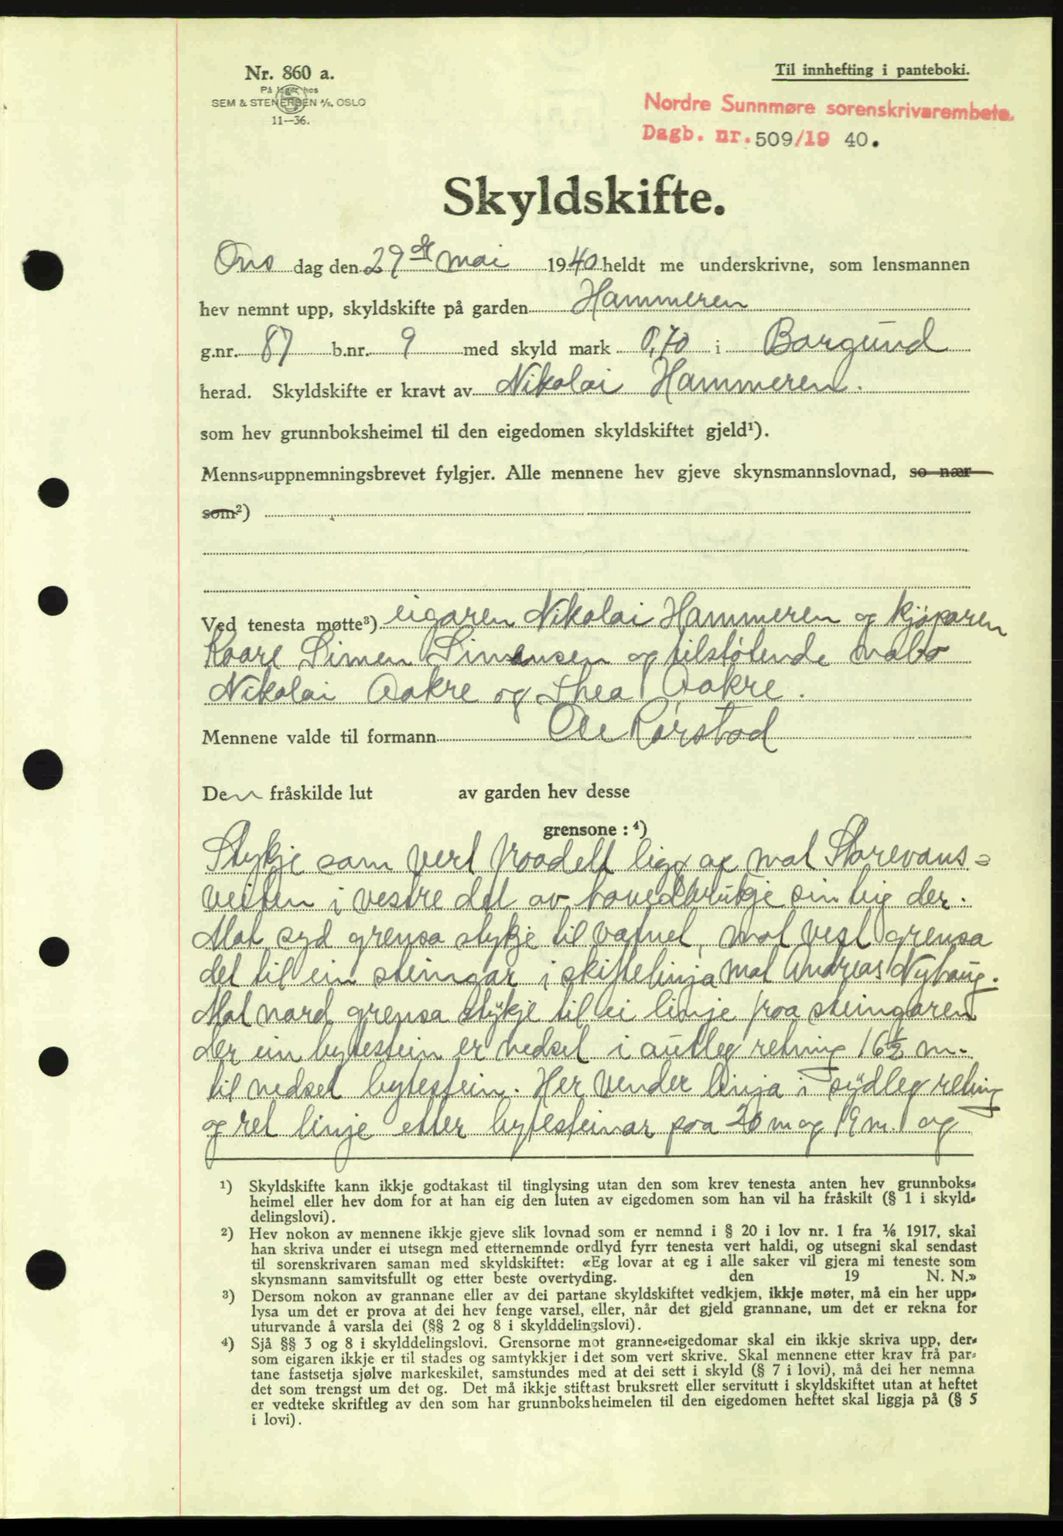 Nr. 860 a.
På lager hos
SEM & STENERSEN A/S, OSLO
11—36.
Til innhefting i panteboki.
Nordre Sunnmøre sorenskrivarembete.
Dagb. nr. 509/19 40.
Skyldskifte.
Ons dag den 29 de mai 1940 heldt me underskrivne, som lensmannen
hev nemnt upp, skyldskifte på garden Hammeren
g.nr. 87 b.nr. 9 med skyld mark 0,70 i Borgund
herad. Skyldskifte er kravt av Nikolai Hammeren.
som hev grunnboksheimel til den eigedomen skyldskiftet gjeld¹).
Menns-uppnemningsbrevet fylgjer. Alle mennene hev gjeve skynsmannslovnad, so nær
som²)
Ved tenesta møtte³) eigaren Nikolai Hammeren og kjöparen
Kaare Simen Simensen og tilstøtende nabo
Nikolai Aakre og Thea Aakre.
Mennene valde til formann Ole Rørstad
Den fråskilde lut av garden hev desse
grensone : ⁴)
Stykje som vert fraadelt ligg mot
i vestre del av sin eig der.
Mot syd grensa stykje til vatnet, mot vest grensa
det til ein steingar i skiftelinja mot Andreas Nybaug.
Mot nord grensa stykje til ei linje fraa steingaren
der ein bytestein er nedset i autleg retning 16½ m.
til nedset bytestein. Her vender linja i sydleg retning
og ret linje etter bytesteinar paa 20 m og 19 m. og
¹) Skyldskifte kann ikkje godtakast til tinglysing utan den som krev tenesta anten hev grunnboks-
heimel eller hev dom for at han eig den luten av eigedomen som han vil ha fråskilt (§ 1 i skyld-
delingslovi).
²) Hev nokon av mennene ikkje gjeve slik lovnad som er nemnd i § 20 i lov nr. 1 fra ⅙ 1917, skal
han skriva under ei utsegn med etternemnde ordlyd fyrr tenesta vert haldi, og utsegni skal sendast
til sorenskrivaren saman med skyldskiftet: «Eg lovar at eg i alle saker vil gjera mi teneste som
skynsmann samvitsfullt og etter beste overtyding. den 19 N. N.»
³) Dersom nokon av grannane eller av dei partane skyldskiftet vedkjem, ikkje møter, må ein her upp-
lysa um det er prova at dei hev fenge varsel, eller, når det gjeld grannane, um det er rekna for
uturvande å varsla dei (§§ 2 og 8 i skylddelingslovi).
⁴) Sjå §§ 3 og 8 i skylddelingslovi. Grensorne mot granne-eigedomar skal ein ikkje skriva upp, der-
som eigaren ikkje er til stades og samtykkjer i det som vert skrive. Skal mennene etter krav frå par-
tane fastsetja sjølve markeskilet, samstundes med at dei sett i skyld (§ 7 i lovi), må dei her nemna
det som trengst um det og. Det må ikkje stiftast bruksrett eller servitutt i skyldskiftet utan at heftet
er vedteke skriftleg av den som har grunnboksheimelen til den eigedomen heftet skal liggja på (§ 5
i lovi).